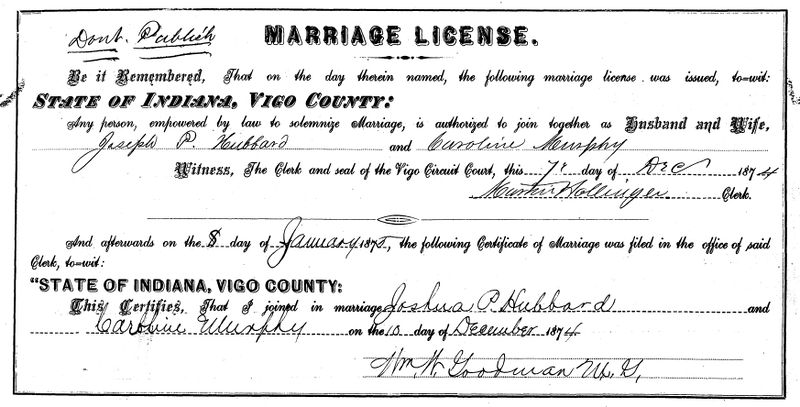 Dont. Publish
MARRIAGE LICENSE.
Be it Remembered, That on the day therein named, the following marriage license was issued, to=wit:
STATE OF INDIANA, VIGO COUNTY:
Any person, empowered by law to solemnize Marriage, is authorized to join together as Husband and Wife,
Joseph P. Hubbard and Caroline Murphy
Witness, The Clerk and seal of the Vigo Circuit Court, this 7" day of Dec 1874
Martin Hollinger Clerk.
And afterwards on the 8 day of January 1875, the following Certificate of Marriage was filed in the office of said
Clerk, to=wit:
"STATE OF INDIANA, VIGO COUNTY:
This Certifies, That I joined in marriage Joshua P. Hubbard and
Caroline Murphy on the 10 day of December 1874
Wm. W. Goodman M. G.